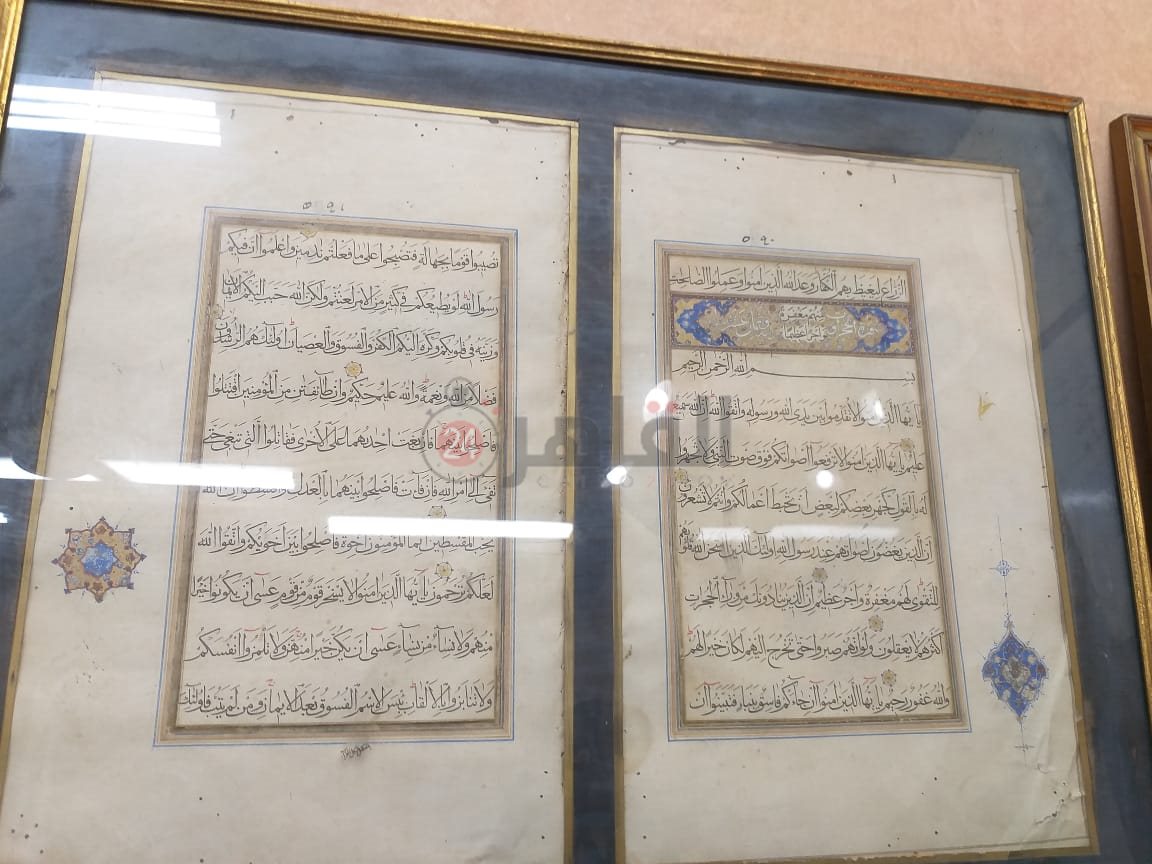 ٥٩٠
الزراع ليغيظ بهم الكفار وعد الله الذين امنوا وعملوا الصالحات
منهم مغفرة
سورة الحجرات
واجرا عظيما
بسم الله الرحمن الرحيم
يا ايها الذين امنوا لا تقدموا بين يدى الله ورسوله واتقوا الله ان الله سميع
عليم يا ايها الذين امنوا لا ترفعوا اصواتكم فوق صوت النبى ولا تجهروا
له بالقول كجهر بعضكم لبعض ان تحبط اعمالكم وانتم لا تشعرون
ان الذين يغضون اصواتهم عند رسول الله اولئك الذين امتحن الله قلوبهم
للتقوى لهم مغفرة واجر عظيم ان الذين ينادونك من وراء الحجرات
اكثرهم لا يعقلون ولو انهم صبروا حتى تخرج اليهم لكان خيرا لهم
والله غفور رحيم يا ايها الذين امنوا ان جاءكم فاسق بنبا فتبينوا ان
٥٩١
تصيبوا قوما بجهالة فتصبحوا على ما فعلتم نادمين واعلموا ان فيكم
رسول الله لو يطيعكم فى كثير من الامر لعنتم ولكن الله حبب اليكم الايمان
وزينه فى قلوبكم وكره اليكم الكفر والفسوق والعصيان اولئك هم الراشدون
فضلا من الله ونعمة والله عليم حكيم وان طائفتان من المؤمنين اقتتلوا
فاصلحوا بينهما فان بغت احديهما على الاخرى فقاتلوا التى تبغى حتى
تفىء الى امر الله فان فاءت فاصلحوا بينهما بالعدل واقسطوا ان الله
يحب المقسطين انما المؤمنون اخوة فاصلحوا بين اخويكم واتقوا الله
لعلكم ترحمون يا ايها الذين امنوا لا يسخر قوم من قوم عسى ان يكونوا خيرا
منهم ولا نساء من نساء عسى ان يكن خيرا منهن ولا تلمزوا انفسكم
ولا تنابزوا بالالقاب بئس الاسم الفسوق بعد الايمان ومن لم يتب فاولئك
القاهرة
24
CAIRO 24